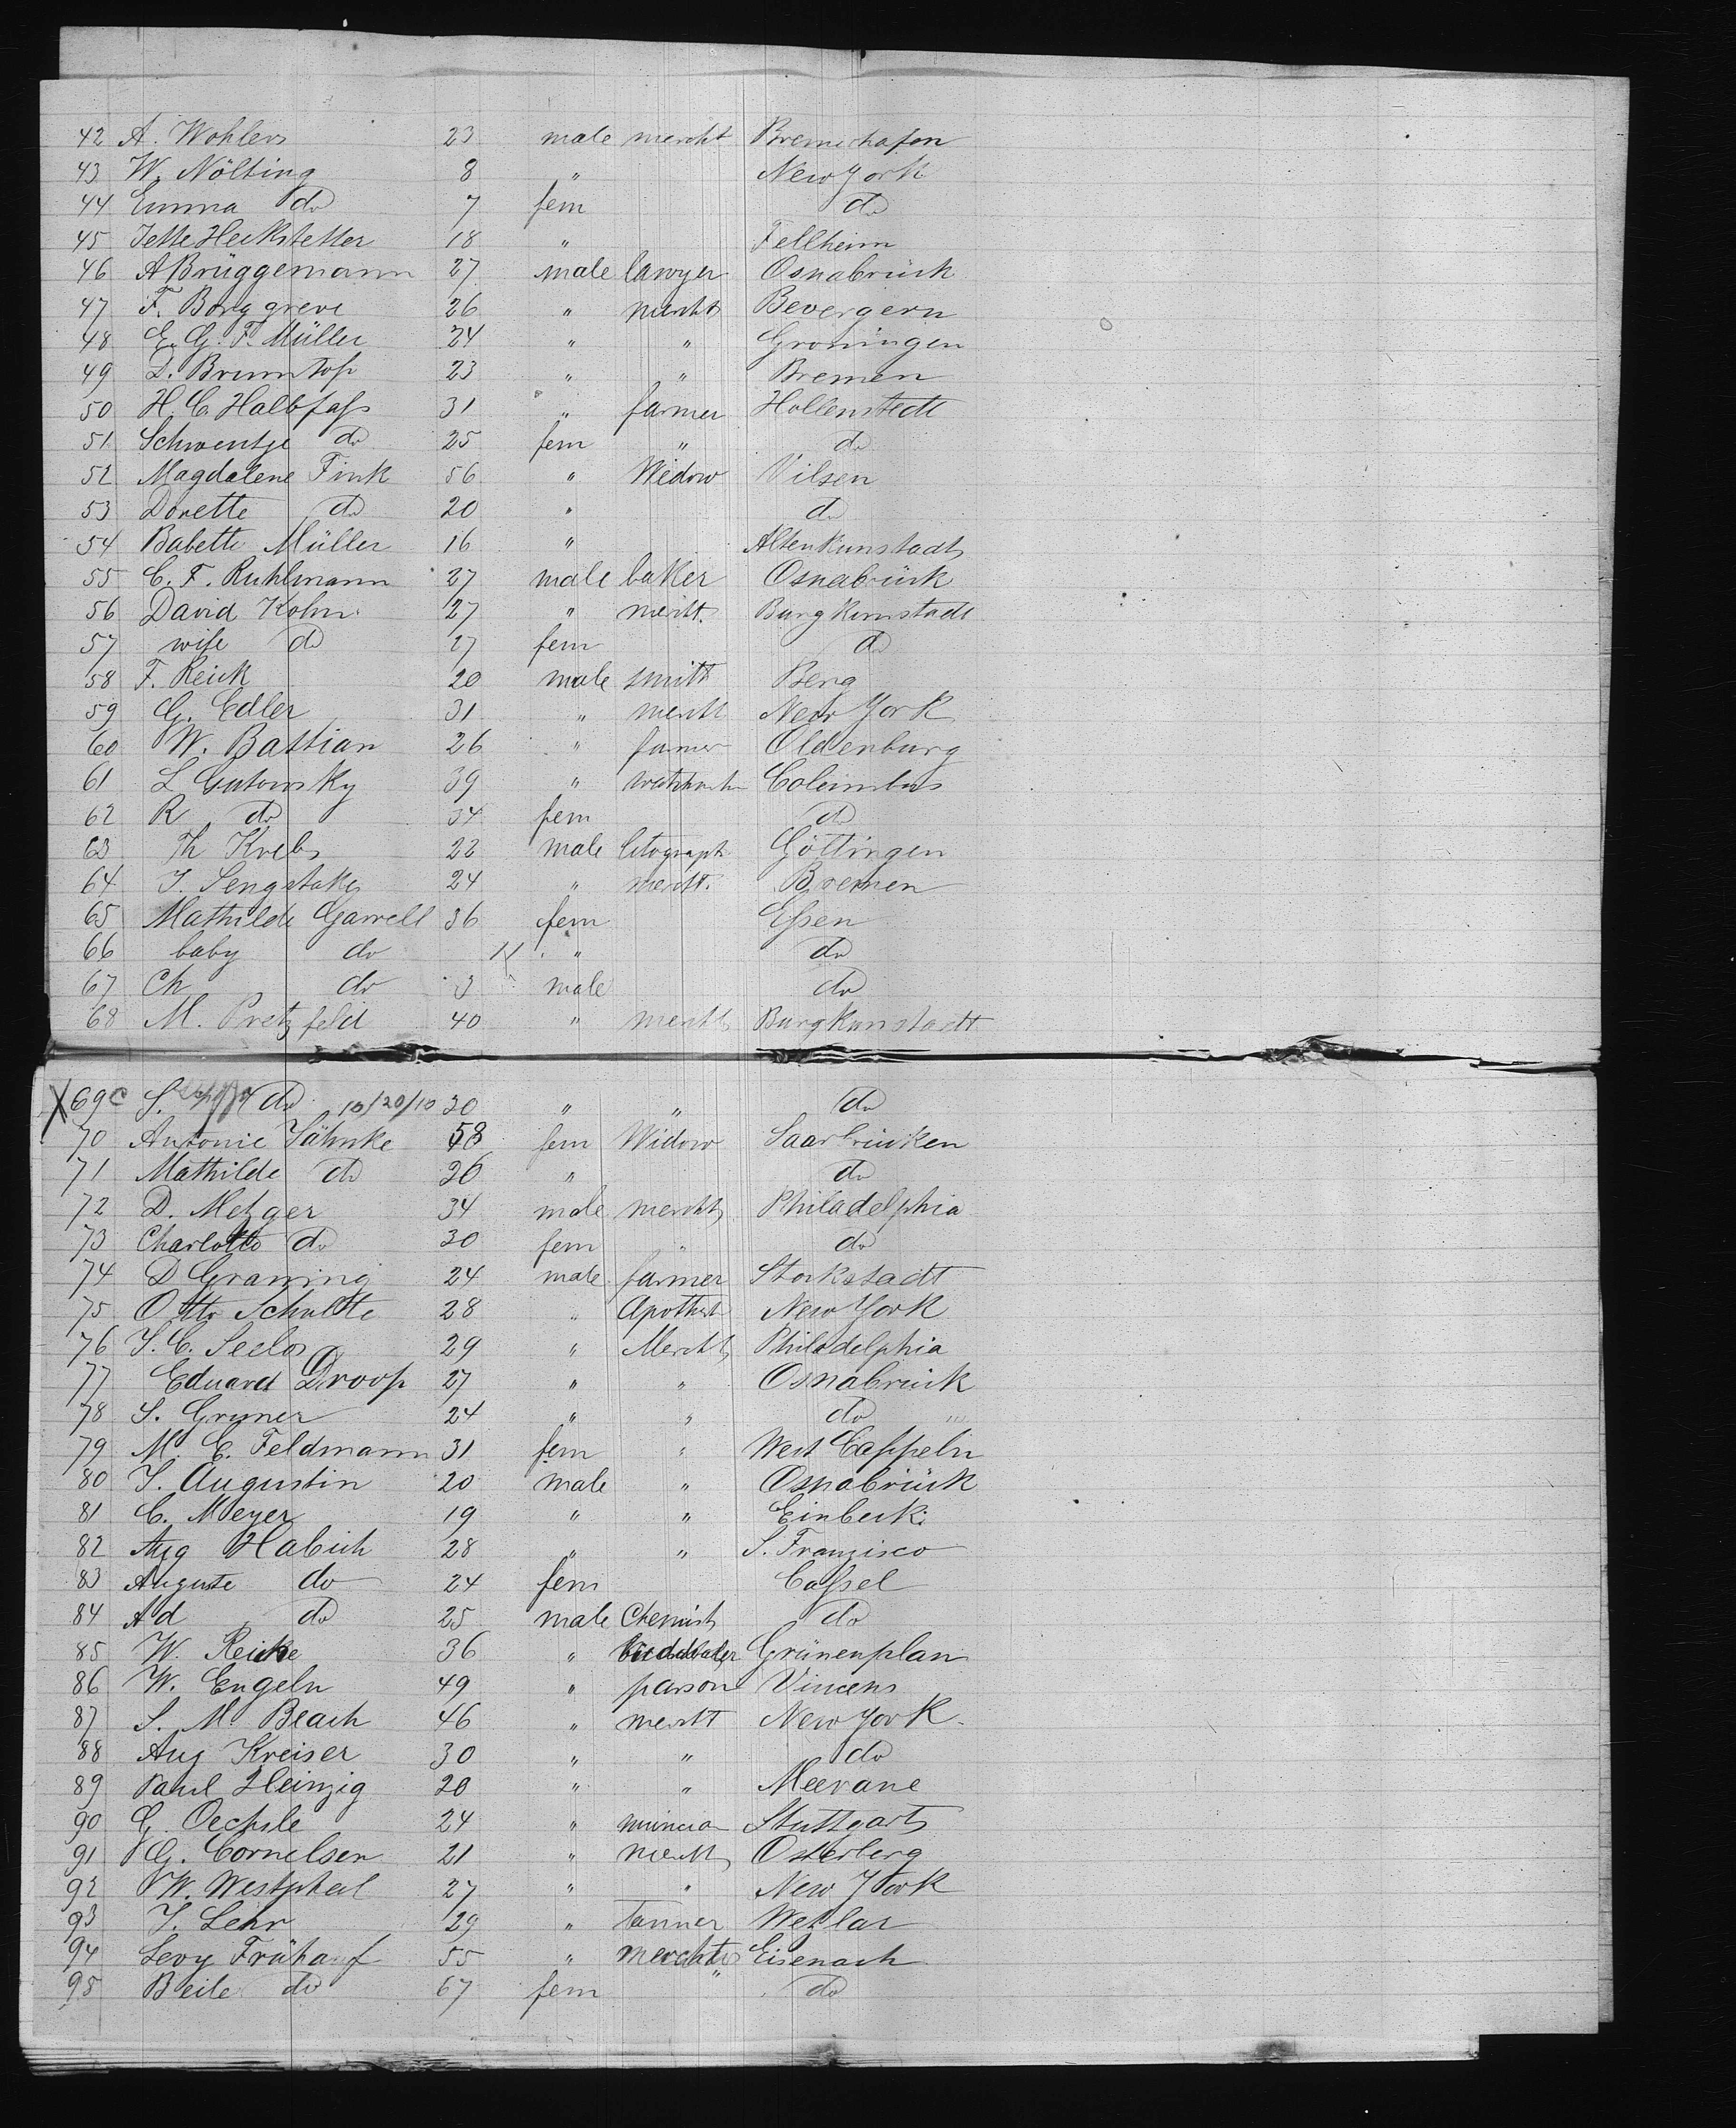 42 A. Wohlers 23 male mercht Bremerhafen
43 W. Nölting 8 " New York
44 Emma do 7 fem do
45 Jette Heckstetter 18 " Fellheim
46 A Brüggemann 27 male lawyer Osnabrück
47 F. Borggreve 26 " mercht Bevergern
48 E. G. F. Müller 24 " " Groningen
49 D. Bruntop 23 " " Bremen
50 H. C. Halbfaſs 31 " farmer Hollenstedt
51 Schwentje do 25 fem " do
52 Magdalene Fink 56 " Widow Vilsen
53 Dorette do 20 " do
54 Babette Müller 16 " Altenkunstadt
55 C. F. Ruhlmann 27 male baker Osnabrück
56 David Kohn 27 " mercht. Burgkunstadt
57 wife do 27 fem do
58 F. Reick 20 male smitt Berg
59 G. Edler 31 " mercht New York
60 W. Bastian 26 " farmer Oldenburg
61 L Gutowsky 39 " Columbus
62 R do 34 fem do
63 Th Krebs 22 male litograph Göttingen
64 J. Sengstake 24 " mercht. Bremen
65 Mathilde Garrell 36 fem Eſsen
66 baby do 11 " do
67 Ch do 3 male do
68 M. Pretzfeld 40 " mercht Burgkunstadt
X 69 c S. do 10/20/10 30 " " do
70 Antonie Jähnke 58 fem Widow Saarbrücken
71 Mathilde do 26 " do
72 D. Metzger 34 male mercht Philadelphia
73 Charlotte do 30 fem " do
74 D Graning 24 male farmer Stockstadt
75 Otto Schultte 28 " Apothek New York
76 J. C. Seelos 29 " Mercht Philadelphia
77 Eduard Droop 27 " " Osnabrück
78 S. Gruner 24 " " do
79 M E. Feldmann 31 fem " West Cappeln
80 J. Augustin 20 male " Osnabrück
81 C. Meyer 19 " " Einbeck
82 Aug Habich 28 " " S. Franzisco
83 Auguste do 24 fem Caſsel
84 Ad do 25 male Chemist do
85 W. Reicke 36 " Grünenplan
86 W. Engeln 49 " parson Vincens
87 S. M. Beach 46 " mercht New York.
88 Aug Kreiser 30 " " do
89 Paul Heinzig 20 " " Meerane
90 G. Oechsle 24 " Stuttgart
91 G. Cornelsen 21 " mercht Osterberg
92 W. Westphal 27 " " New York
93 J. Lehr 29 " Tanner Wetzlar
94 Levy Frühauf 55 " merchts Eisenach
95 Beile do 67 fem " do